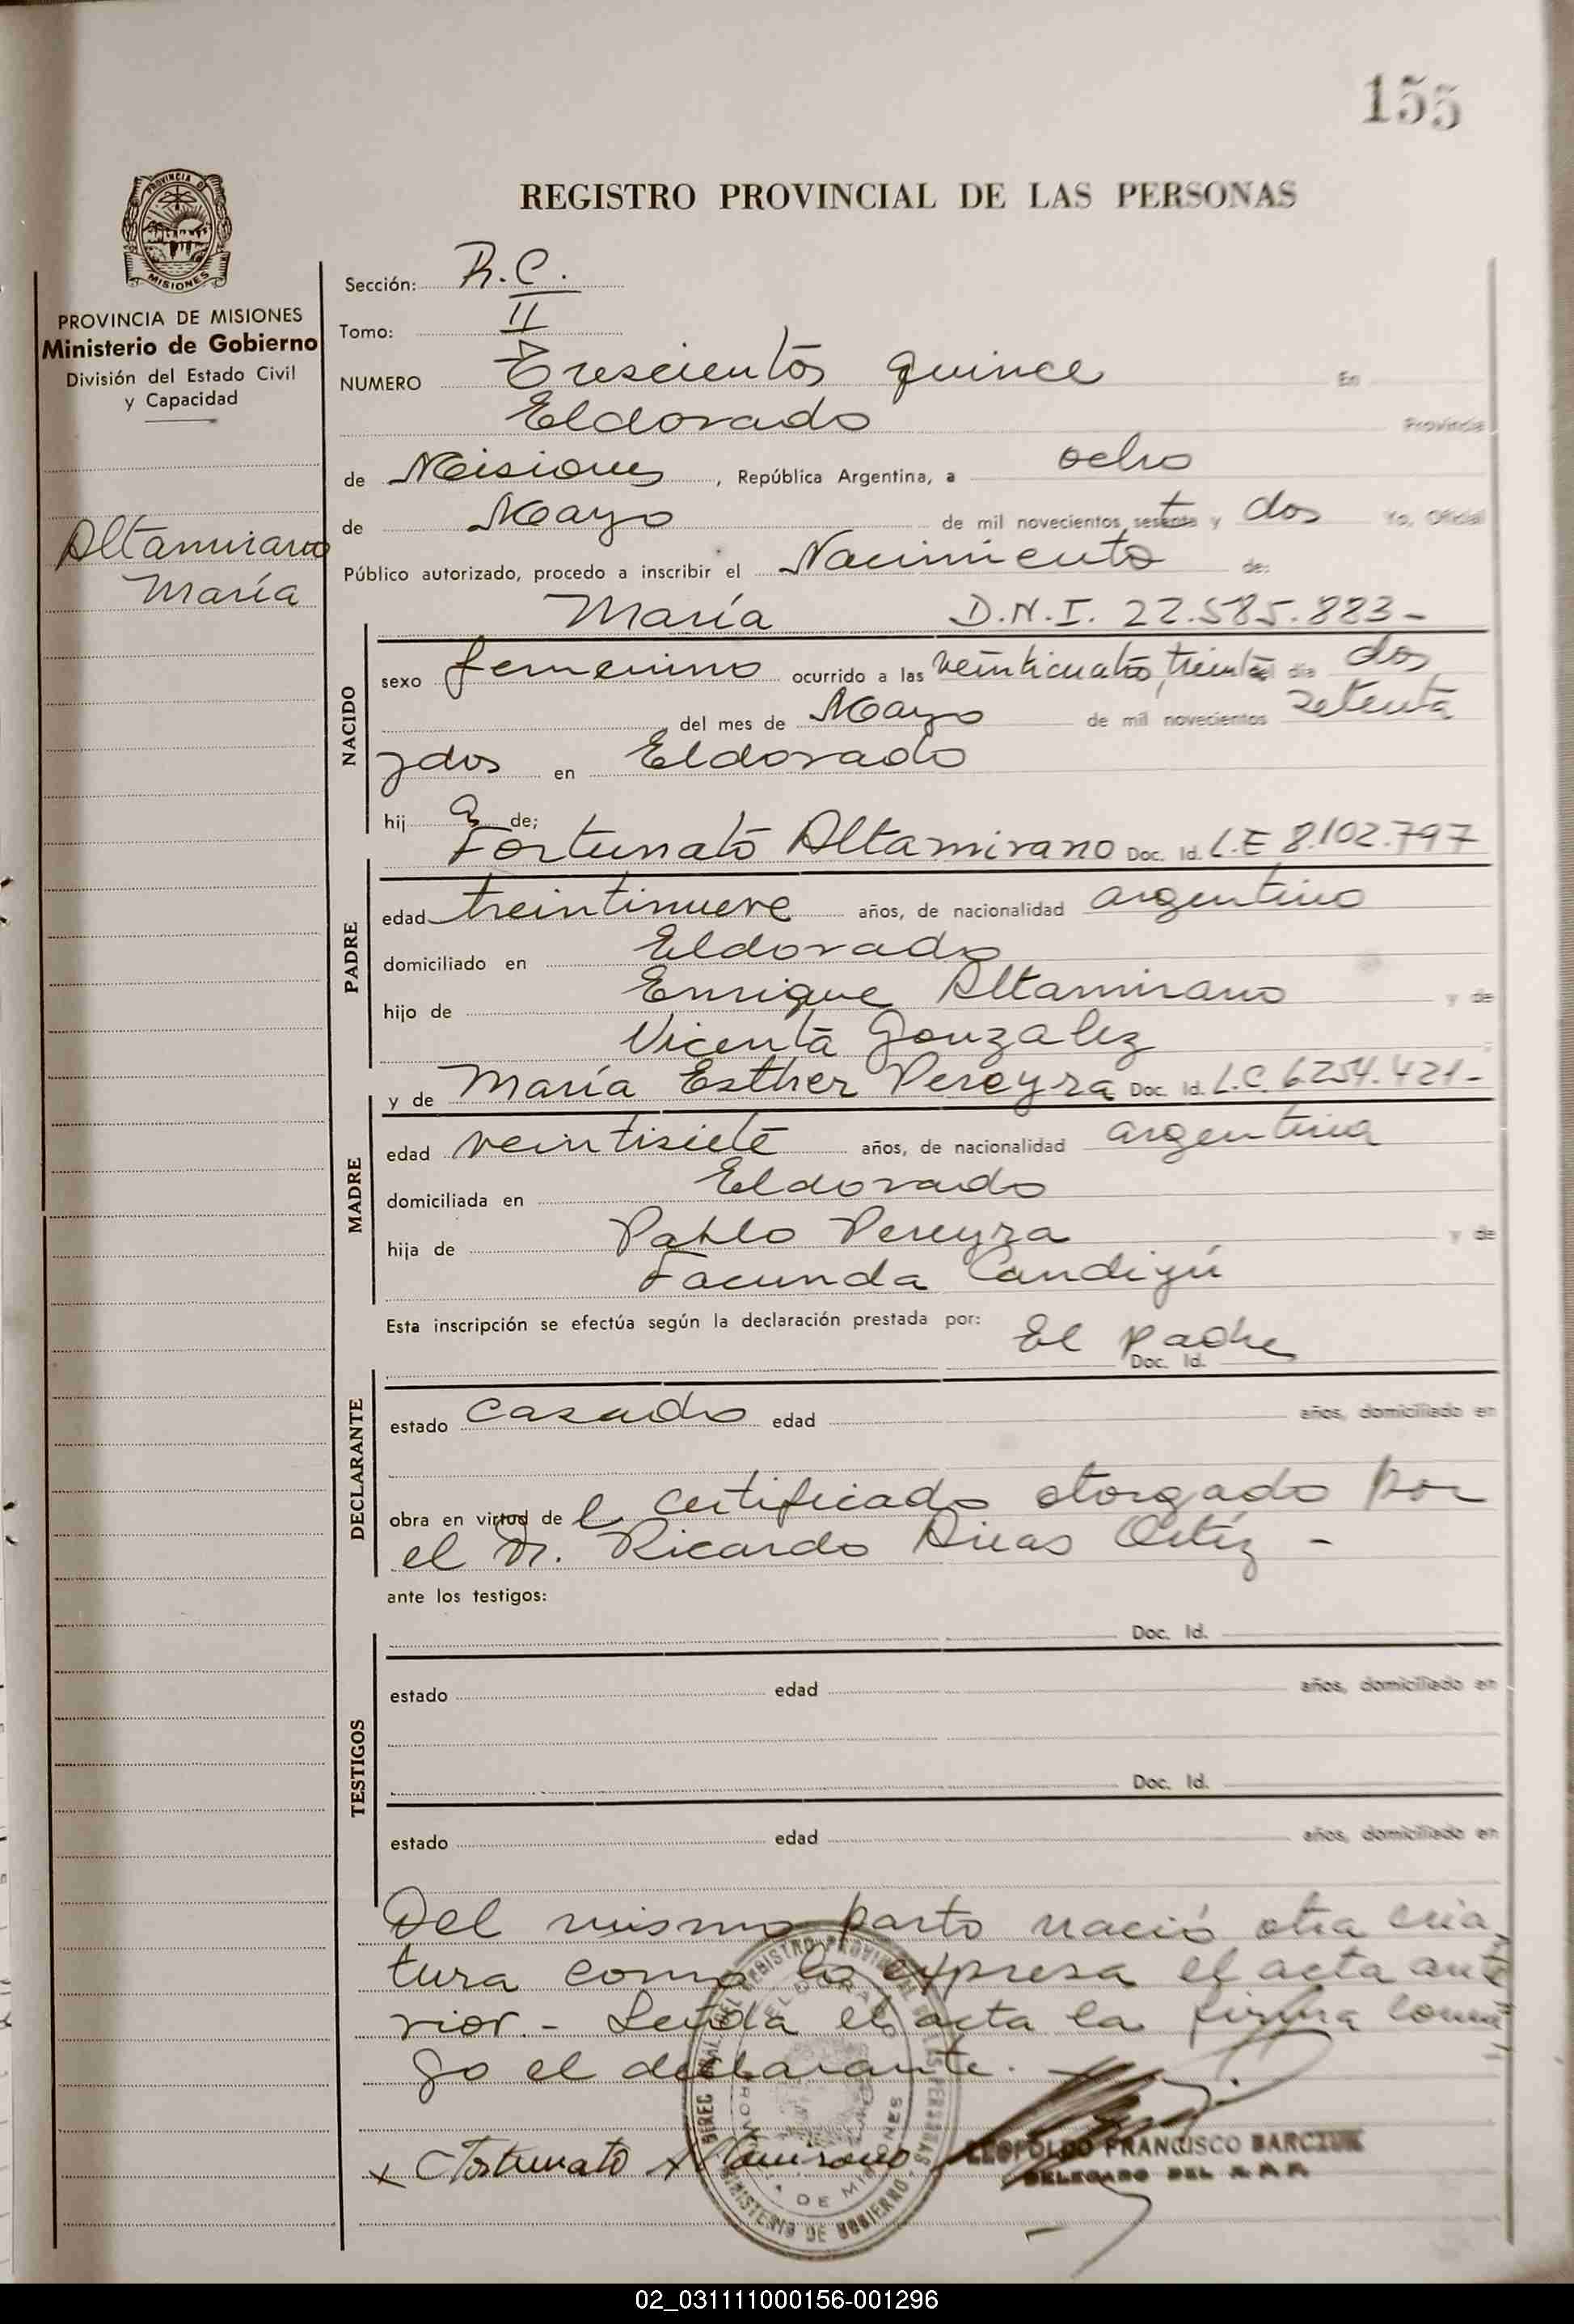 155
REGISTRO PROVINCIAL DE LAS PERSONAS
PROVINCIA DE MISIONES
PROVINCIA DE MISIONES
Ministerio de Gobierno
División del Estado Civil
y Capacidad
Altamirano
María
Sección: R.C.
Tomo: II
NUMERO Trescientos quince En
Eldorado Provincia
de Misiones, República Argentina, a ocho
de Mayo de mil novecientos setenta y dos Yo, Oficial
Público autorizado, procedo a inscribir el Nacimiento de:
María D.N.I. 22.585.883-
NACIDO
sexo femenino ocurrido a las veinticuatro, treinta del día dos
del mes de Mayo de mil novecientos setenta
y dos en Eldorado
hij a de;
Fortunato Altamirano Doc. Id. L.E 8.102.797
PADRE
edad treintinueve años, de nacionalidad argentino
domiciliado en Eldorado
hijo de Enrique Altamirano y de
Vicenta Gonzalez
y de María Esther Pereyra Doc. Id. L.C. 6.254.421-
MADRE
edad veintisiete años, de nacionalidad argentina
domiciliada en Eldorado
hija de Pablo Pereyra y de
Facunda Candiyú
Esta inscripción se efectúa según la declaración prestada por: El padre
Doc. Id.
DECLARANTE
estado casado edad años, domiciliado en
obra en virtud de l certificado otorgado por
el Dr. Ricardo Ortíz -
ante los testigos:
Doc. Id.
TESTIGOS
estado edad años, domiciliado en
Doc. Id.
estado edad años, domiciliado en
Del mismo parto nació otra cria
tura como lo expresa el acta ante
rior. - Leída el acta la firma conmi
go el declarante.
x Fortunato Altamirano
LEOPOLDO FRANCISCO BARCZUK
DELEGADO DEL R.P.P.
MINISTERIO DE GOBIERNO
02_031111000156-001296